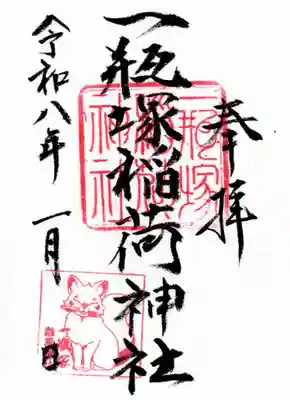 奉拝
一瓶塚稲荷神社
令和八年 一月 日
一瓶塚稲荷神社